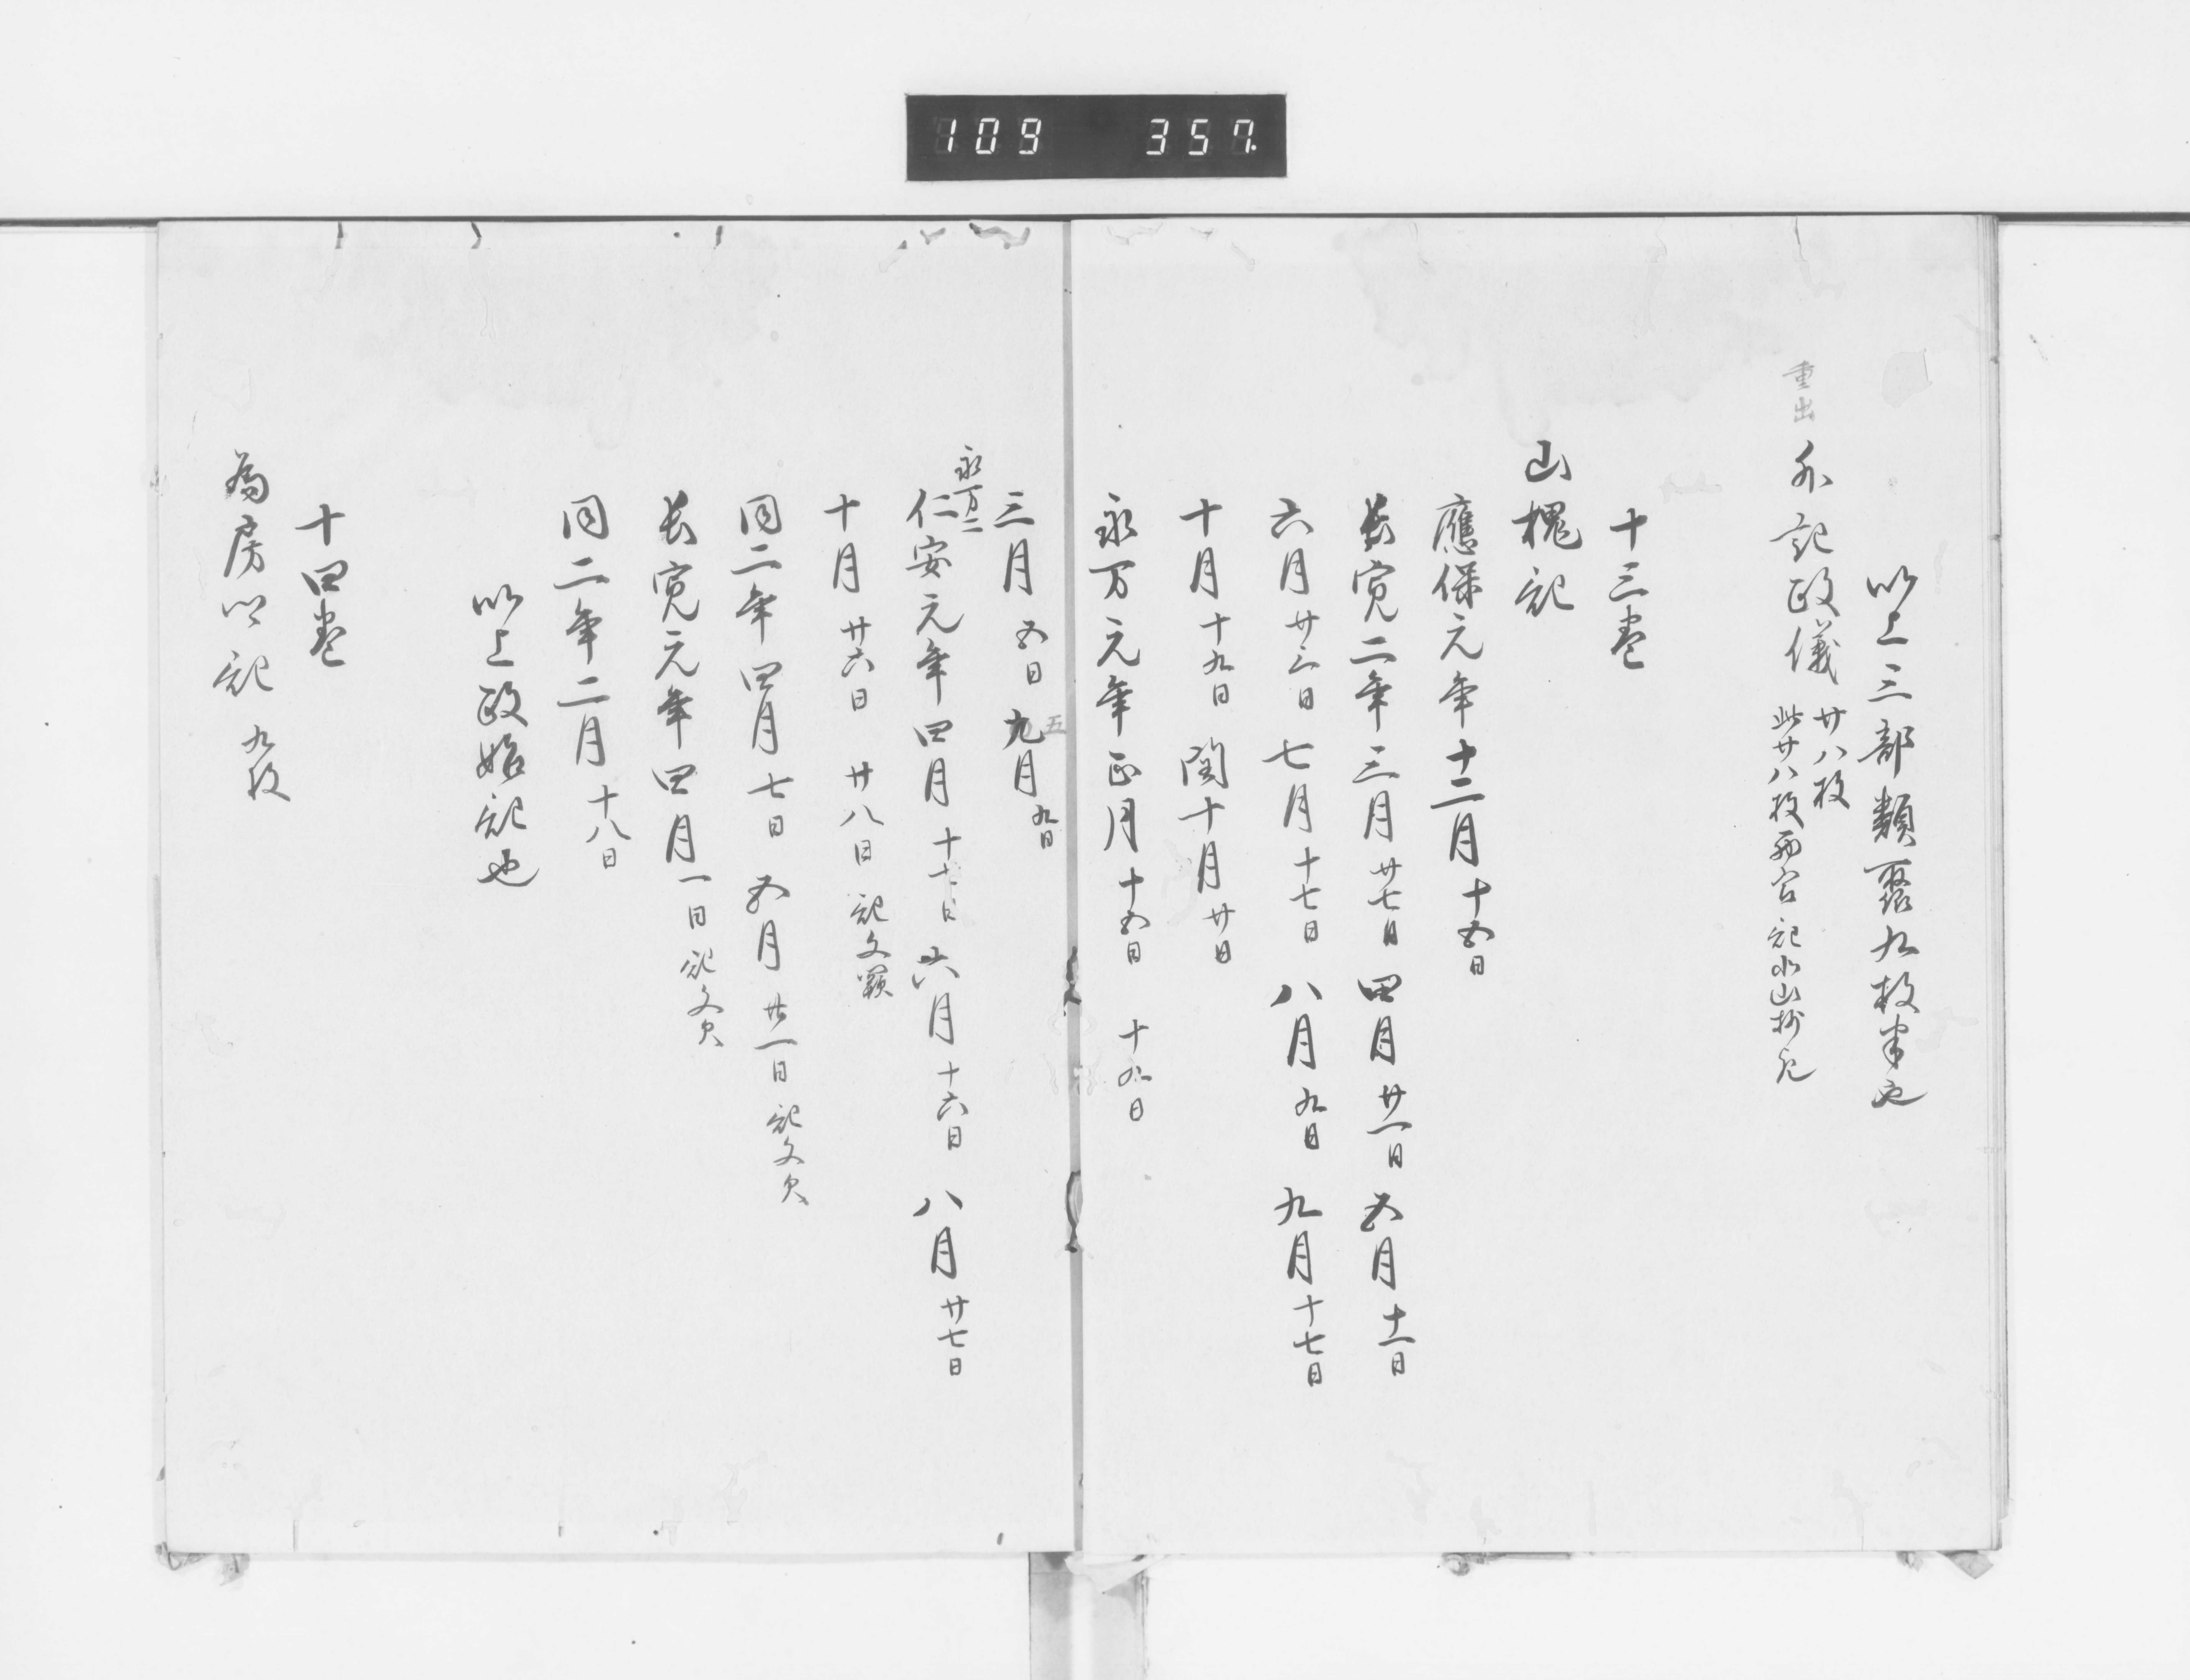 109 357.
以上三部類聚九枚半也
重出
外記政儀 廿八枚
此廿八枚西宮記北山抄見
十三巻
山槐記
應保元年十二月十五日
長寛二年三月廿七日 四月廿一日 五月十一日
六月廿三日 七月十七日 八月九日 九月十七日
十月十九日 閏十月廿日
永万元年正月十五日 十九日
三月五日 九月九日
五
永万二
仁安元年四月十七日 六月十六日 八月廿七日
十月廿六日 廿八日記文闕
同二年四月七日 五月廿一日記文欠
長寛元年四月一日記文欠
同二年二月十八日
以上政始記也
十四巻
為房卿記 九枚